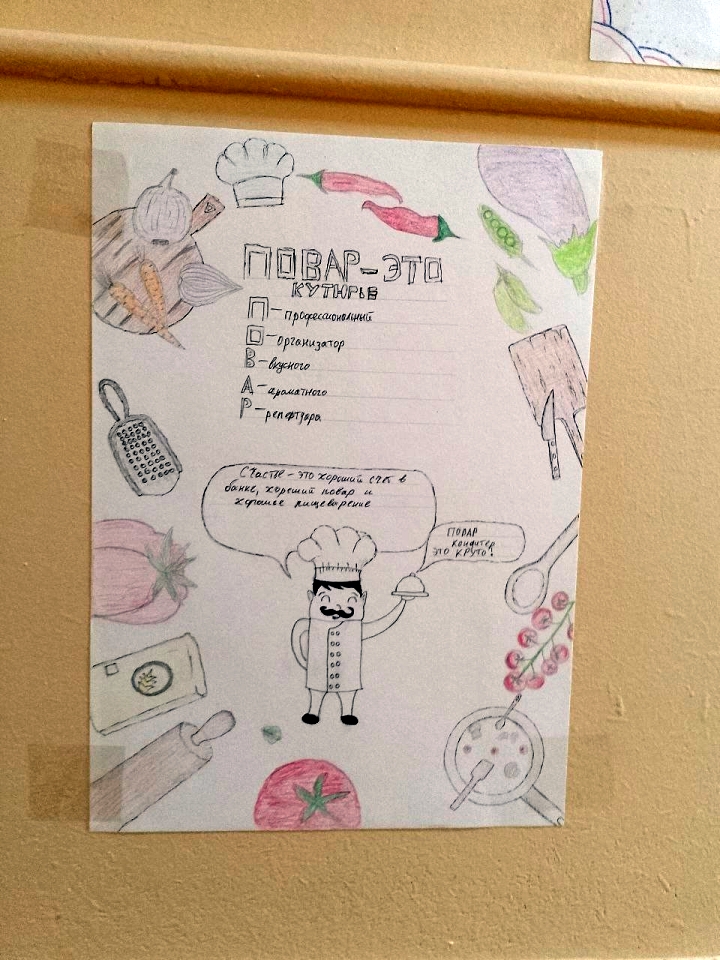 ПОВАР-ЭТО
КУТЮРЬЕ
П-профессиональный
О-организатор
В-вкусного
А-ароматного
Р-репертуара
Счастье-это хороший счёт в
банке, хороший повар и
хорошее пищеварение
ПОВАР
кондитер
ЭТО КРУТО!